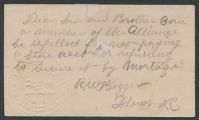 Dear Sir and Brother Can
a member of the Alliance
be expelled for not paying
a Store acct or refusing
to Secure it by Mortgage
R W Biggers
N.C.